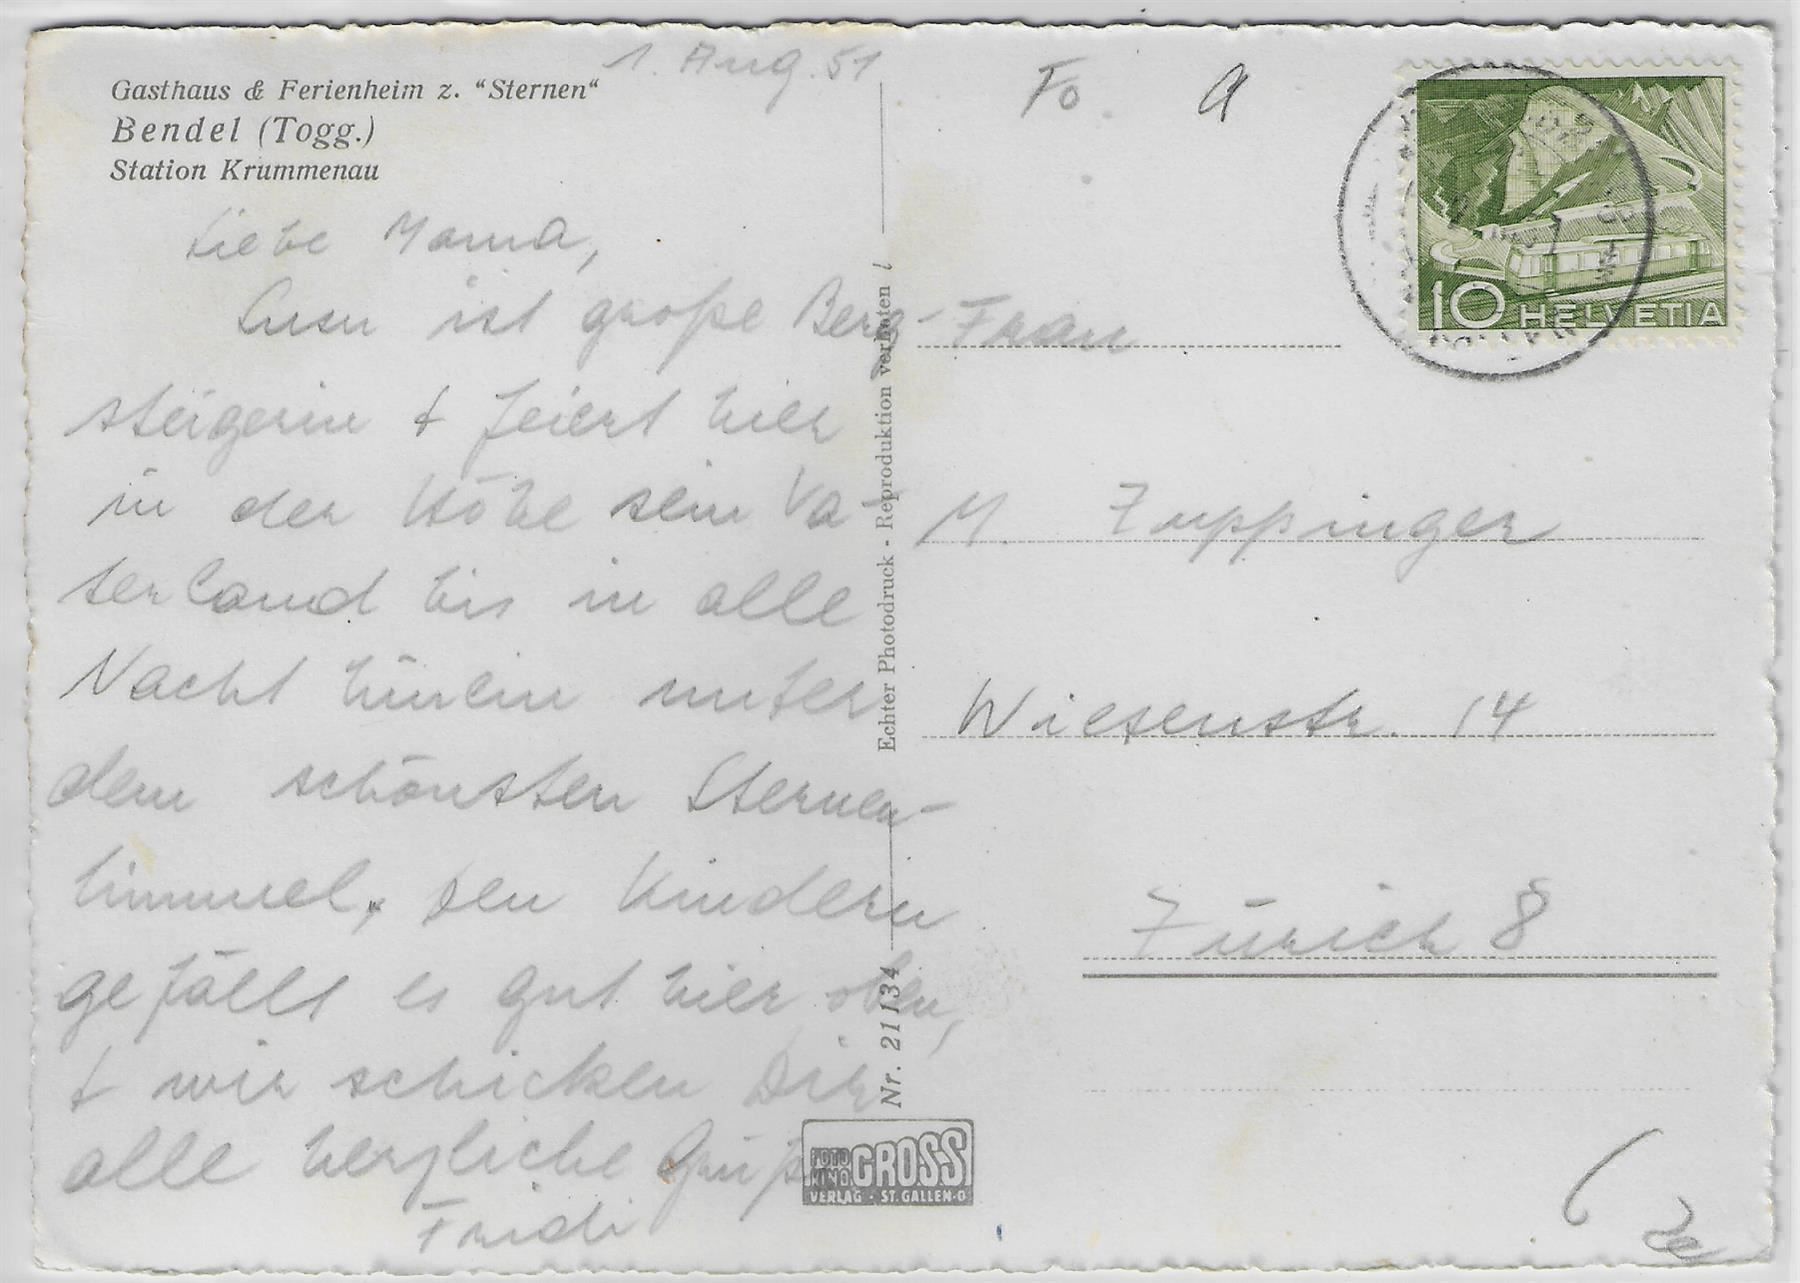 1. Aug. 51
Gasthaus & Ferienheim z. "Sternen"
Bendel (Togg.)
Station Krummenau
Liebe Mama,
Susu ist große Berg-
steigerin + feiert hier
in der Höhe sein Va-
terland bis in alle
Nacht hinein unter
dem schönsten Sternen-
himmel. Den Kindern
gefällt es gut hier oben,
+ wir schicken Dir
alle herzliche Grüße
Fridi
Echter Photodruck - Reproduktion verboten
Nr. 21134
FOTO KINO GROSS
VERLAG · ST. GALLEN-O
Fo. a
10 HELVETIA
Frau
M. Zuppinger
Wiesenstr. 14
Zürich 8